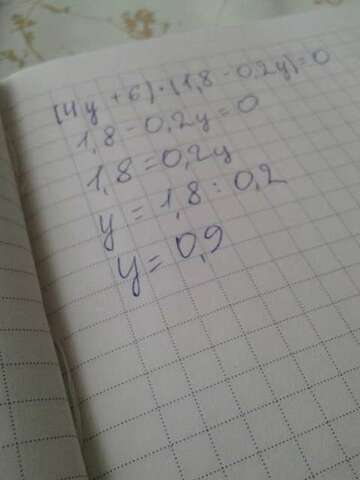 (4y + 6) · (1,8 - 0,2y) = 0
1,8 - 0,2y = 0
1,8 = 0,2y
y = 1,8 : 0,2
y = 0,9